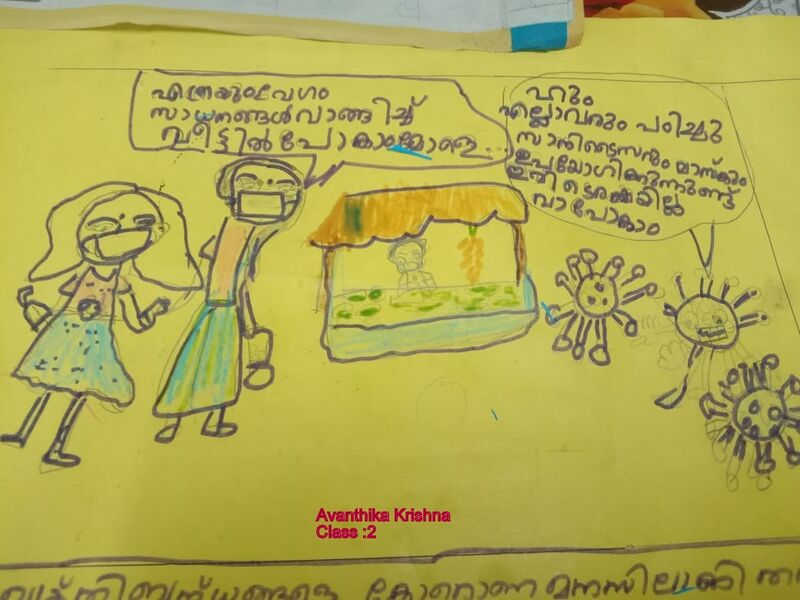 എത്രയുംവേഗം
സാധനങ്ങൾ വാങ്ങിച്ച്
വീട്ടിൽ പോകാംമോളെ...
ഹും
എല്ലാവരും പഠിച്ചു
സാനിടൈസറും മാസ്കും
ഉപയോഗിക്കുന്നുണ്ട്
ഇവിടെ രക്ഷയില്ല
വാ പോകാം
Avanthika Krishna
Class :2
കോറൊണ മനസിലാക്കി